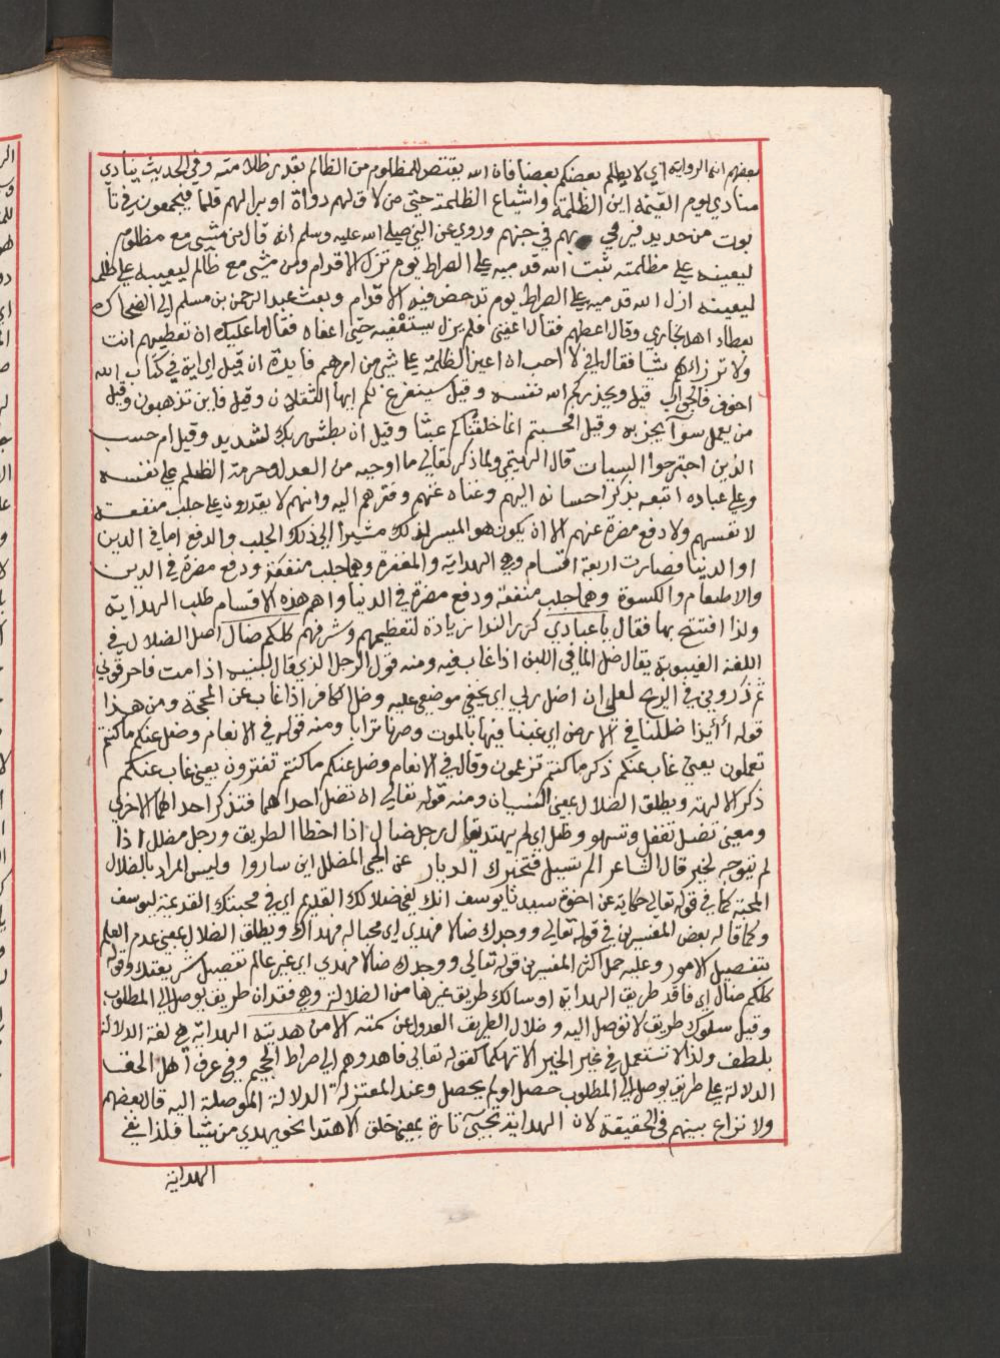 بعضهم انها الرواية اي لا يظلم بعضكم بعضا فان الله يقتص للمظلوم من الظالم بقدر ظلامته وفي الحديث ينادي
منادي يوم القيمة اين الظلمة واشياع الظلمة حتى من لاق لهم دواة او برا لهم قلما فيجمعون في تا
بوت من حديد فيرمى بهم في جهنم وروي عن النبي صلى الله عليه وسلم انه قال من مشى مع مظلوم
ليعينه على مظلمته ثبت الله قدميه على الصراط يوم تزل الاقدام ومن مشى مع ظالم ليعينه على ظلمه
ازل الله قدميه على الصراط يوم تدحض فيه الاقدام وبعث عبد الرحمن بن مسلم الى الضحاك
بعطاء اهل بخارى وقال اعطهم فقال اعفني فلم يزل يستعفيه حتى اعفاه فقال ما عليك ان تعطيهم انت
ولا ترزأهم شيا فقال اني لا احب ان اعين الظلمة على شي من امرهم فايدة ان قيل اي اية في كتاب الله
اخوف فالجواب قيل ويحذركم الله نفسه وقيل سنفرغ لكم ايها الثقلان وقيل فاين تذهبون وقيل
من يعمل سوآ يجز به وقيل افحسبتم انما خلقناكم عبثا وقيل ان بطش ربك لشديد وقيل ام حسب
الذين اجترحوا السيات قال الهيتمي ولما ذكر تعالى ما اوجبه من العدل وحرمة الظلم على نفسه
وعلى عباده اتبعه بذكر احسانه اليهم وغناه عنهم وفقرهم اليه وانهم لا يقدرون على جلب منفعة
لانفسهم ولا دفع مضرة عنهم الا ان يكون هو الميسر لذلك مشيرا الى ذلك الجلب والدفع اما في الدين
او الدنيا فصارت اربعة اقسام وهي الهداية والمغفرة وهما جلب منفعة ودفع مضرة في الدين
والاطعام والكسوة وهما جلب منفعة ودفع مضرة في الدنيا واهم هذه الاقسام طلب الهداية
ولذا افتتح بها فقال يا عبادي كرر الندا زيادة لتعظيمهم وشرفهم كلكم ضال اصل الضلال في
اللغة الغيبوبة يقال ضل الما في اللبن اذا غاب فيه ومنه قول الرجل الذي قال لبنيه اذا مت فاحرقوني
ثم ذروني في الريح لعلي ان اضل ربي اي يخفى موضعي عليه وضل الكافر اذا غاب عن المحجة ومن هذا
قوله أأيذا ضللنا في الارض اي غبنا فيها بالموت وصرنا ترابا ومنه قوله في الانعام وضل عنكم ما كنتم
تعملون يعني غاب عنكم ذكر ما كنتم تزعمون وقال في الانعام وضل عنكم ما كنتم تفترون يعني غاب عنكم
ذكر الالهة ويطلق الضلال بمعنى النسيان ومنه قوله تعالى ان تضل احداهما فتذكر احداهما الاخرى
ومعنى تضل تغفل وتسهو وظل اي لم يهتد يقال رجل ضال اذا اخطا الطريق ورجل مضلل اذا
لم يتوجه لخير قال الشاعر الم تسيل فتخبرك الديار عن الحي المضلل اين ساروا وليس المراد بالضلال
المحبة كما في قوله تعالى حكاية عن اخوة سيدنا يوسف انك لفي ضلالك القديم اي في محبتك القديمة ليوسف
وكما قاله بعض المفسرين في قوله تعالى ووجدك ضالا فهدى اي محبا له فهداك ويطلق الضلال بمعنى عدم العلم
بتفصيل الامور وعليه حمل اكثر المفسرين قوله تعالى ووجدك ضالا فهدى اي غير عالم تفصيل شريعتك وقوله
كلكم ضال اي فاقد طريق الهداية او سالك طريق غيرها من الضلالة وهي فقدان طريق يوصل الى المطلوب
وقيل سلوك طريق لا توصل اليه وضلال الطريق العدول عن سمته الا من هديته الهداية هي لغة الدلالة
بلطف ولذا لا تستعمل في غير الخير الا تهكما كقوله تعالى فاهدوهم الى صراط الجحيم وفي عرف اهل الحق
الدلالة على طريق يوصل الى المطلوب حصل او لم يحصل وعند المعتزلة الدلالة الموصلة اليه قال بعضهم
ولا نزاع بينهم في الحقيقة لان الهداية تجيئ تارة بمعنى خلق الاهتدا نحو يهدي من يشا فلذا نفي
الهداية